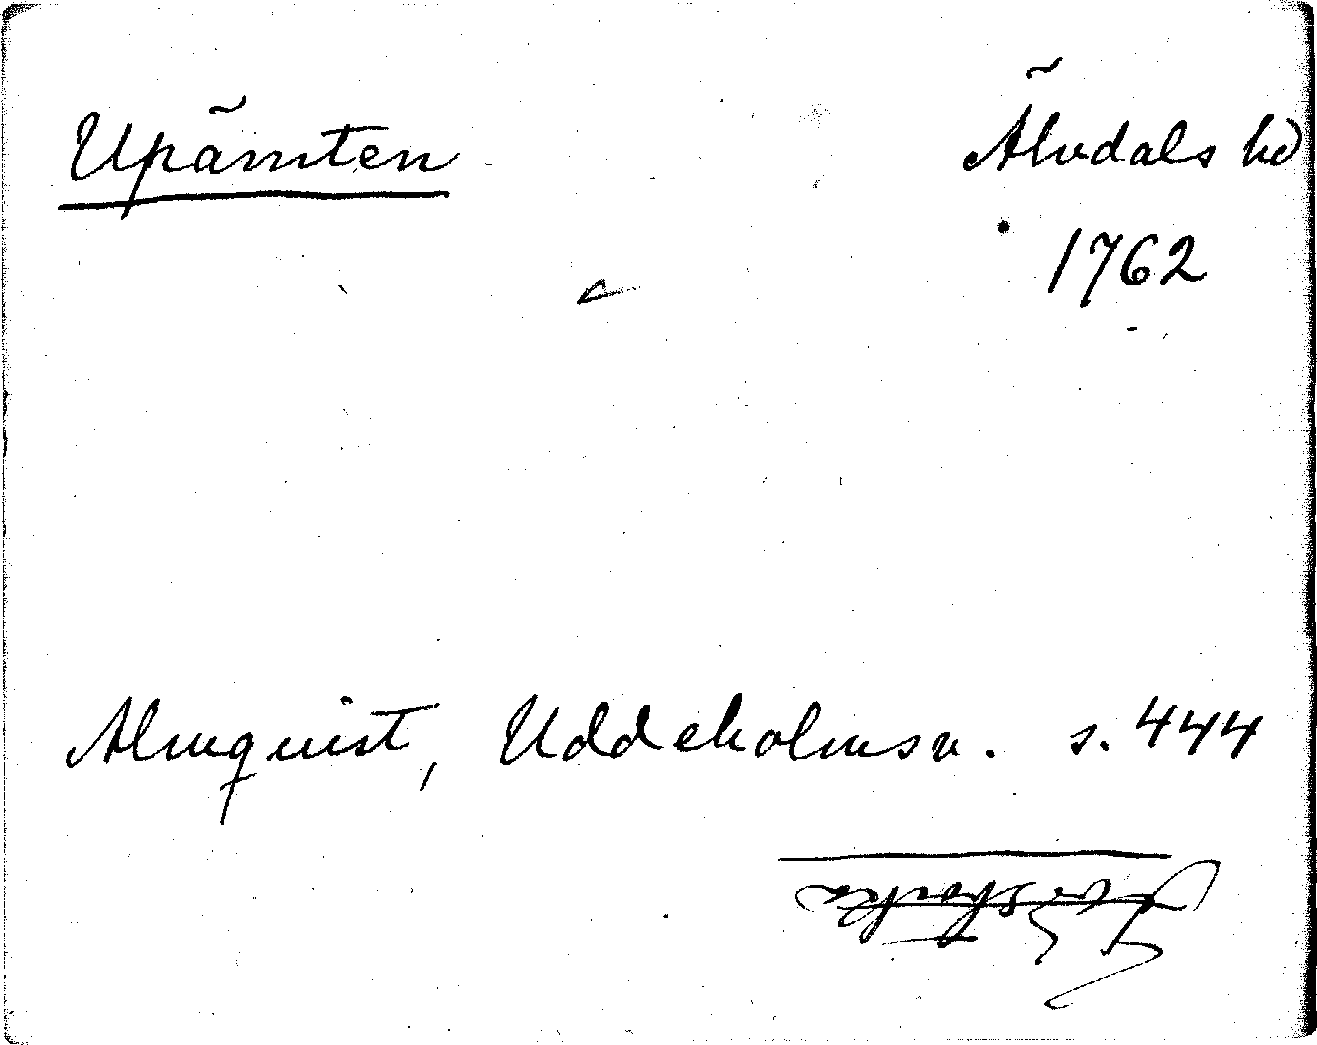 Upämten
Älvdals hd
1762
Almquist, Uddeholmsv. s. 444